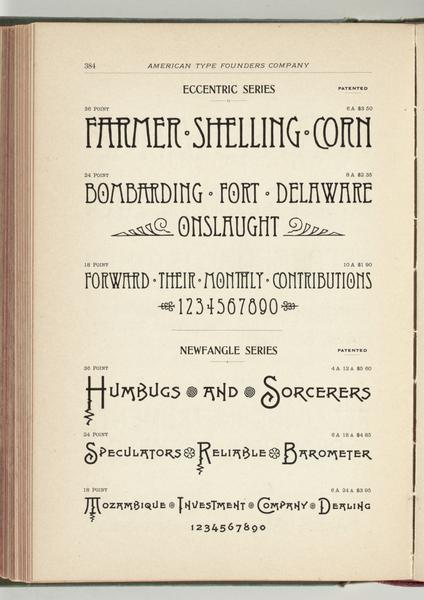 384 AMERICAN TYPE FOUNDERS COMPANY
ECCENTRIC SERIES PATENTED
36 POINT 6 A $3 50
FARMER · SHELLING · CORN
24 POINT 8 A $2 35
BOMBARDING · FORT · DELAWARE
ONSLAUGHT
18 POINT 10 A $1 90
FORWARD · THEIR · MONTHLY · CONTRIBUTIONS
1234567890
NEWFANGLE SERIES PATENTED
36 POINT 4 A 12 A $5 60
HUMBUGS AND SORCERERS
24 POINT 6 A 18 A $4 85
SPECULATORS RELIABLE BAROMETER
18 POINT 8 A 24 A $3 95
MOZAMBIQUE INVESTMENT COMPANY DEALING
1234567890